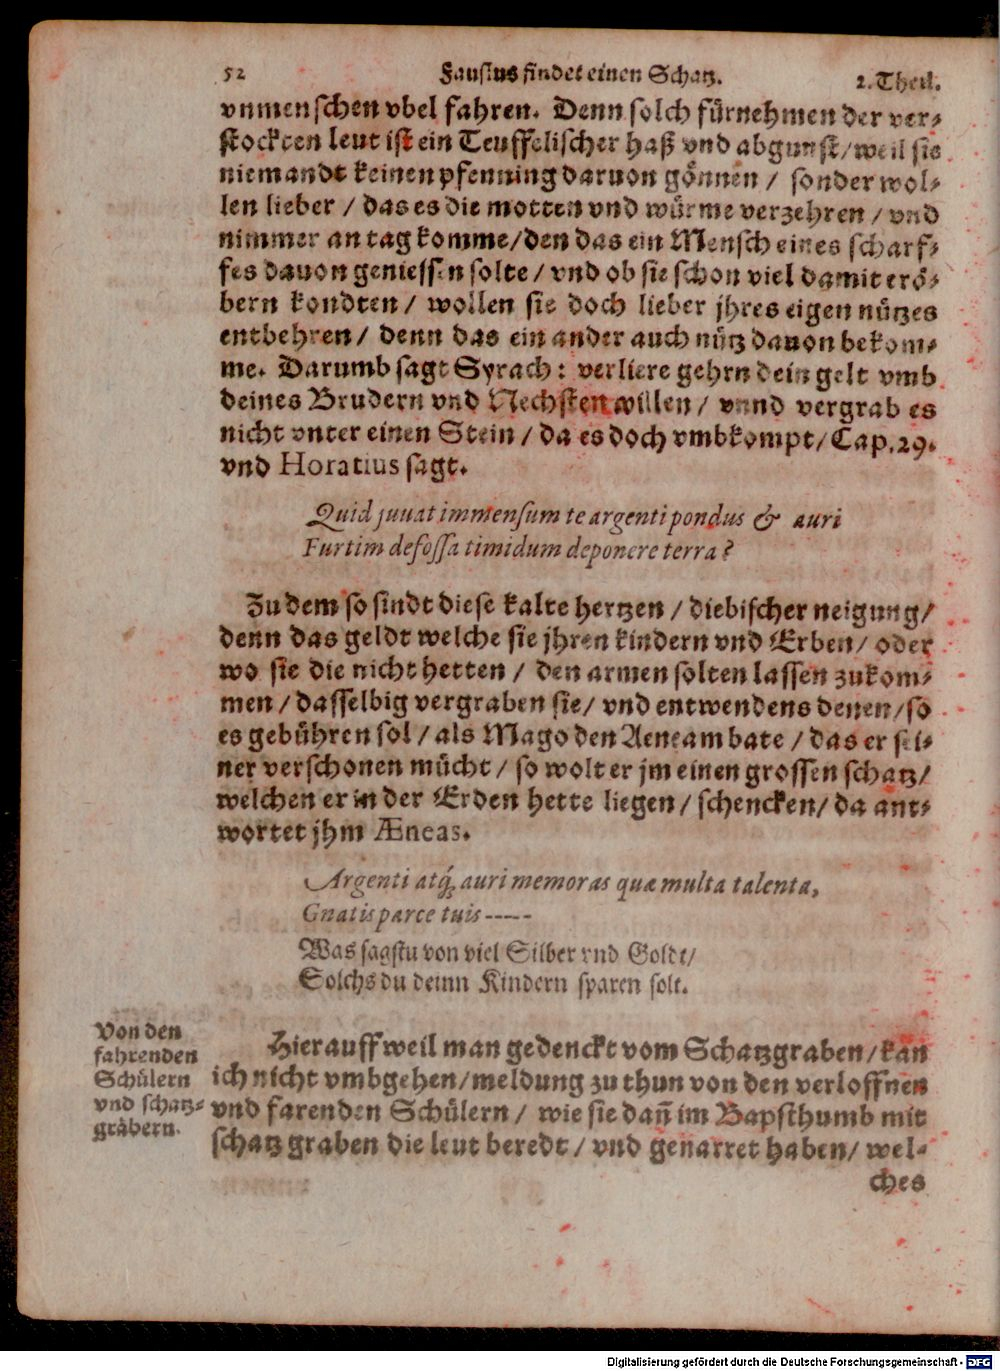 52 Faustus findet einen Schatz. 2. Theil.
vnmenschen vbel fahren. Denn solch fürnehmen der ver-
stockten leut ist ein Teuffelischer haß vnd abgunst/ weil sie
niemandt keinen pfenning daruon gönnen / sonder wol-
len lieber / das es die motten vnd würme verzehren / vnd
nimmer an tag komme/ den das ein Mensch eines scharf-
fes dauon geniessen solte / vnd ob sie schon viel damit erö-
bern kondten / wollen sie doch lieber jhres eigen nützes
entbehren / denn das ein ander auch nütz dauon bekom-
me. Darumb sagt Syrach: verliere gehrn dein gelt vmb
deines Brudern vnd Nechsten willen / vnnd vergrab es
nicht vnter einen Stein / da es doch vmbkompt/ Cap. 29.
vnd Horatius sagt.
Quid juuat immensum te argenti pondus & auri
Furtim defossa timidum deponere terra?
Zu dem so sindt diese kalte hertzen / diebischer neigung/
denn das geldt welche sie jhren kindern vnd Erben/ oder
wo sie die nicht hetten / den armen solten lassen zukom-
men / dasselbig vergraben sie/ vnd entwendens denen/ so
es gebühren sol / als Mago den Aeneam bate / das er sei-
ner verschonen mücht / so wolt er jm einen grossen schatz/
welchen er in der Erden hette liegen / schencken/ da ant-
wortet jhm Æneas.
Argenti atq́; auri memoras quæ multa talenta,
Gnatis parce tuis -----
Was sagstu von viel Silber vnd Goldt/
Solchs du deinn Kindern sparen solt.
Von den
fahrenden
Schülern
vnd schatz-
gräbern.
Hierauff weil man gedenckt vom Schatzgraben/ kan
ich nicht vmbgehen/ meldung zu thun von den verloffnen
vnd farenden Schülern / wie sie dañ im Bapsthumb mit
schatz graben die leut beredt / vnd genarret haben/ wel-
ches
Digitalisierung gefördert durch die Deutsche Forschungsgemeinschaft - DFG